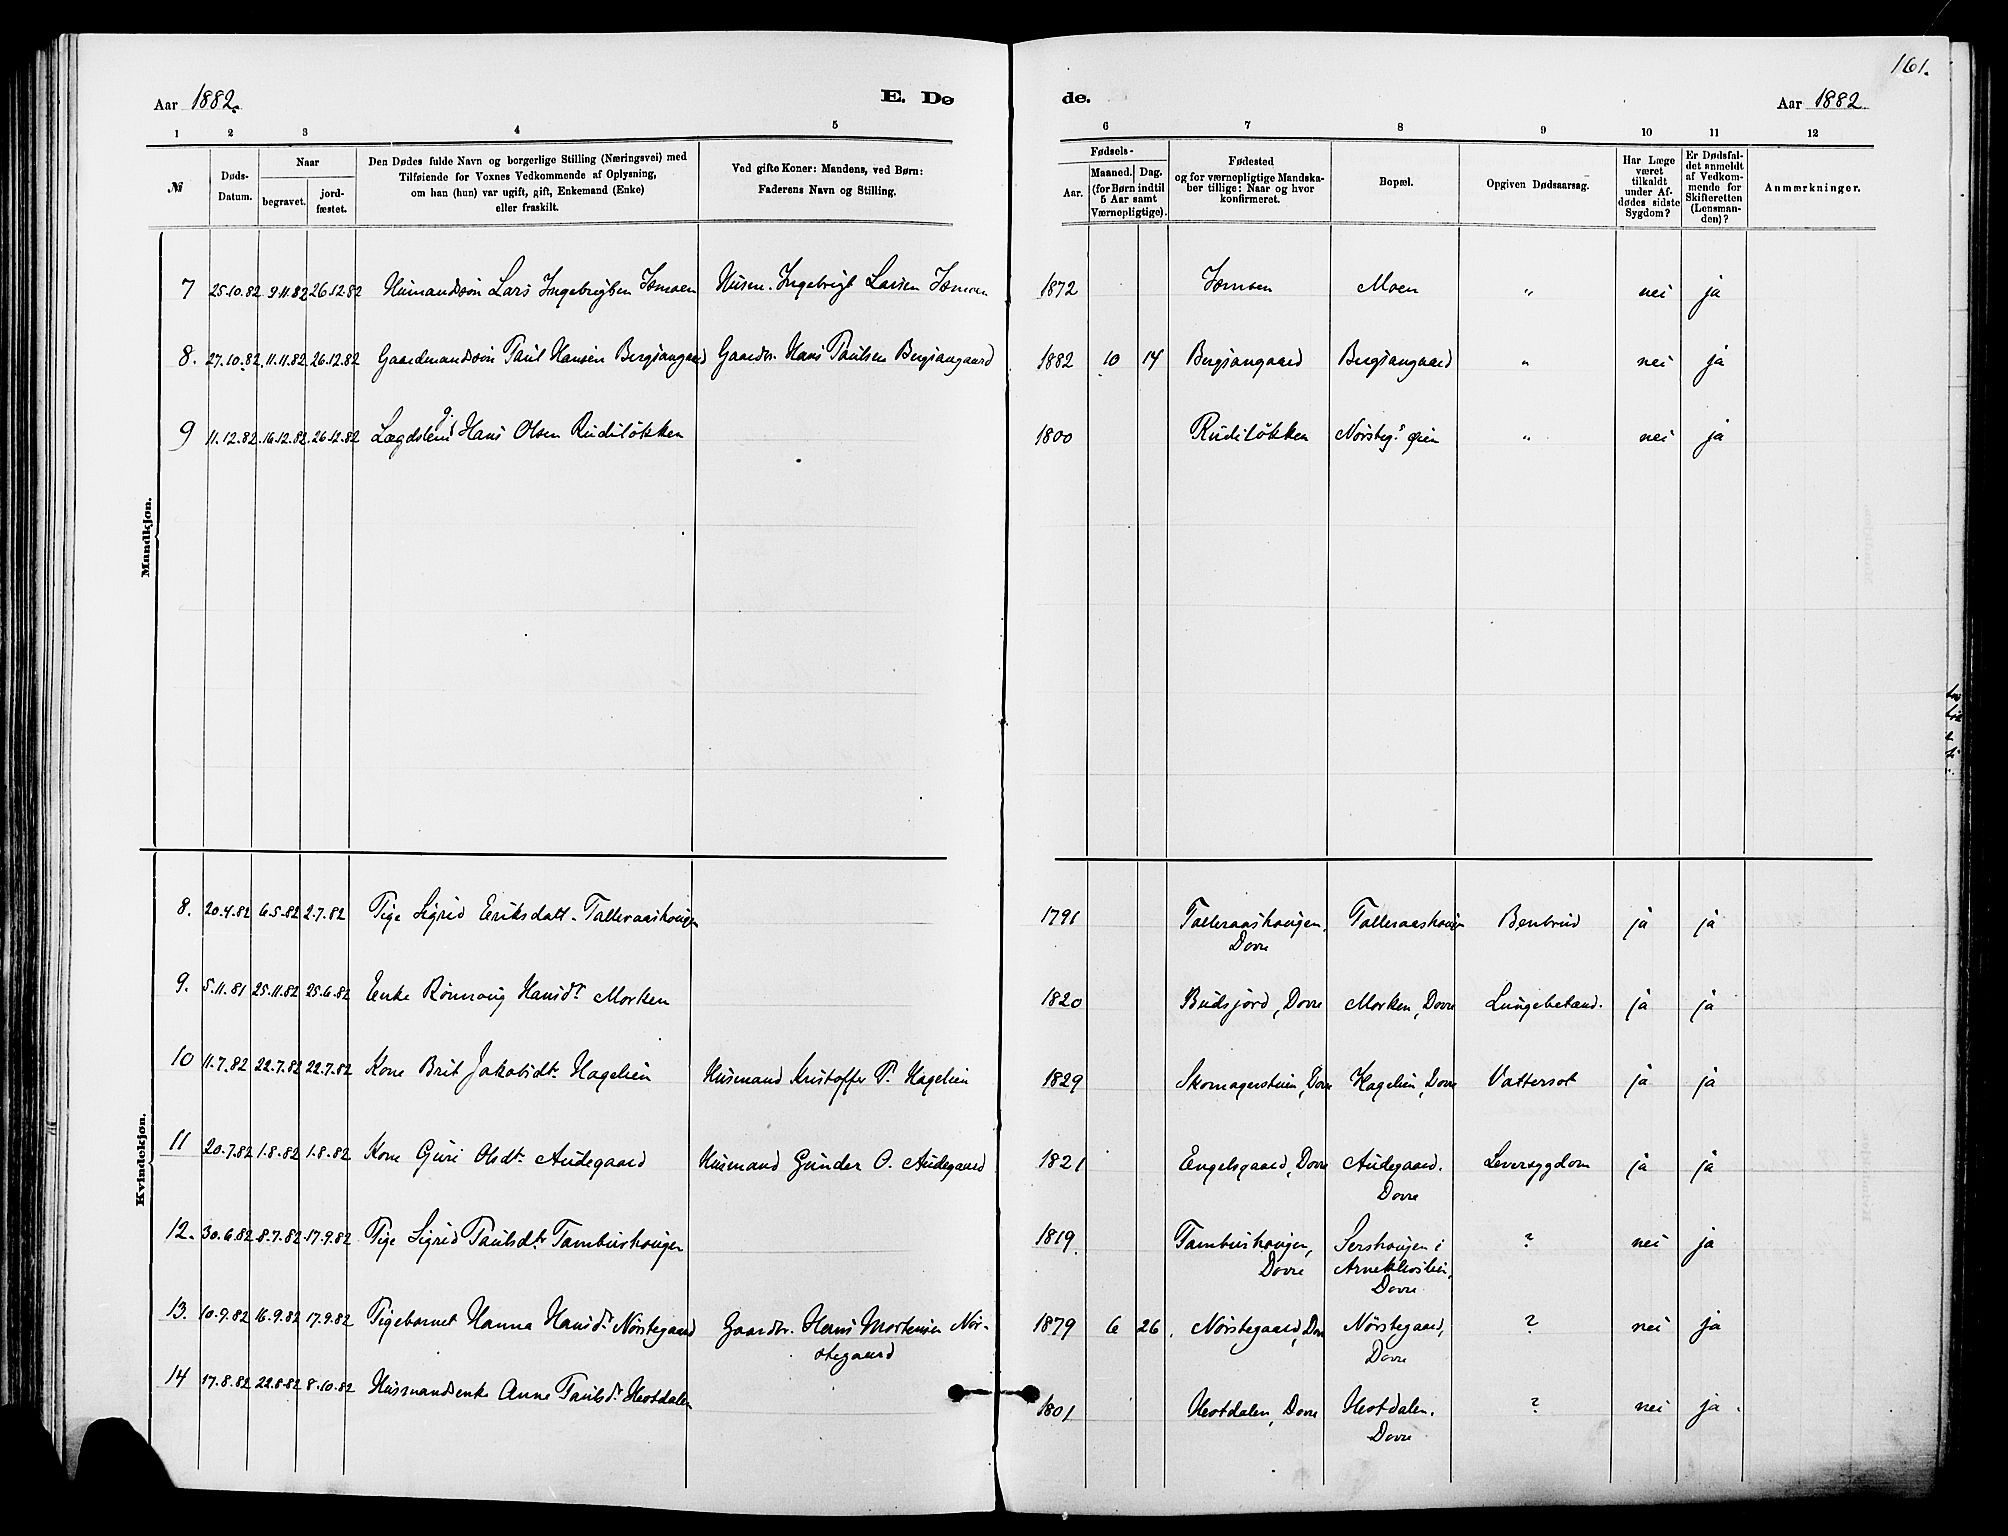 161.
Aar 1882. E. Dø de. Aar 1882
1 2 3 4 5 6 7 8 9 10 11 12
№
Døds-
Datum.
Naar
begravet.
jord-
fæstet.
Den Dødes fulde Navn og borgerlige Stilling (Næringsvei) med
Tilføiende for Voxnes Vedkommende af Oplysning,
om han (hun) var ugift, gift, Enkemand (Enke)
eller fraskilt.
Ved gifte Koner: Mandens, ved Børn:
Faderens Navn og Stilling.
Fødsels-
Aar.
Maaned. Dag.
(for Børn indtil
5 Aar samt
Værnepligtige).
Fødested
og for værnepligtige Mandska-
ber tillige: Naar og hvor
konfirmeret.
Bopæl.
Opgiven Dødsaarsag.
Har Læge
været
tilkaldt
under Af-
dødes sidste
Sygdom?
Er Dødsfal-
det anmeldt
af Vedkom-
mende for
Skifteretten
(Lensman-
den)?
Anmærkninger.
Mandkjøn.
7 25.10.82 9.11.82 26.12.82 Husmandssøn Lars Ingebrigtsen Jømoen Husm. Ingebrigt Larsen Jømoen 1872 Moen " nei ja
8. 27.10.82 11.11.82 26.12.82 Gaardmandssøn Paul Hansen Bergsangaard Gaardbr. Hans Paulsen Bergsangaard 1882 10 14 Bergsangaard Bergsangaard " nei ja
9 11.12.82 16.12.82 26.12.82 Lægdslem g. Hans Olsen Rudiløkken 1800 Rudiløkken " nei ja
Kvindekjøn.
8. 20.4.82 6.5.82 2.7.82 Pige Sigrid Eriksdatt. Talleraashougen 1791 Talleraashougen, Talleraashougen Benbrud ja ja
Dovre
9. 5.11.81 25.11.82 25.6.82 Enke Rønnoug Hansdr Morken 1820 Budsjord, Dovre Morken, Dovre Lungebetænd. ja ja
10 11.7.82 22.7.82 22.7.82 Kone Brit Jakobsdt. Hagelien Husmand Kristoffer P. Hagelien 1829 Skomagerstuen, Dovre Hagelien, Dovre Vattersot ja ja
11 20.7.82 1.8.82 1.8.82 Kone Guri Olsdt. Audegaard Husmand Gunder O. Audegaard 1821 Engelsgaard, Dovre Audegaard. Leversygdom ja ja
Dovre
12. 30.6.82 8.7.82 17.9.82 Pige Sigrid Paulsdt. Tamburhougen 1819 Tamburhougen, Sershougen i ? nei ja
Dovre
Dovre
13. 10.9.82 16.9.82 17.9.82 Pigebarnet Hanna Hansdr Nørstegaard Gaardbr. Hans Mortensen Nør- 1879 6 26. Nørstegaard, Dovre Nørstegaard, ? nei ja
stegaard Dovre
14 17.8.82 22.8.82 8.10.82 Husmandsenke Anne Paulsdr Hestdalen 1801 Hestdalen, Dovre Hestdalen. ? nei ja
Dovre